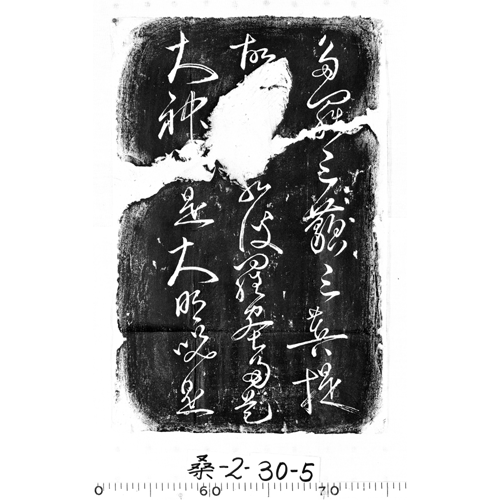 多羅三藐三菩提
故 知般羅蜜多是
大神 是大明咒是
桑-2-30-5
0 60 70